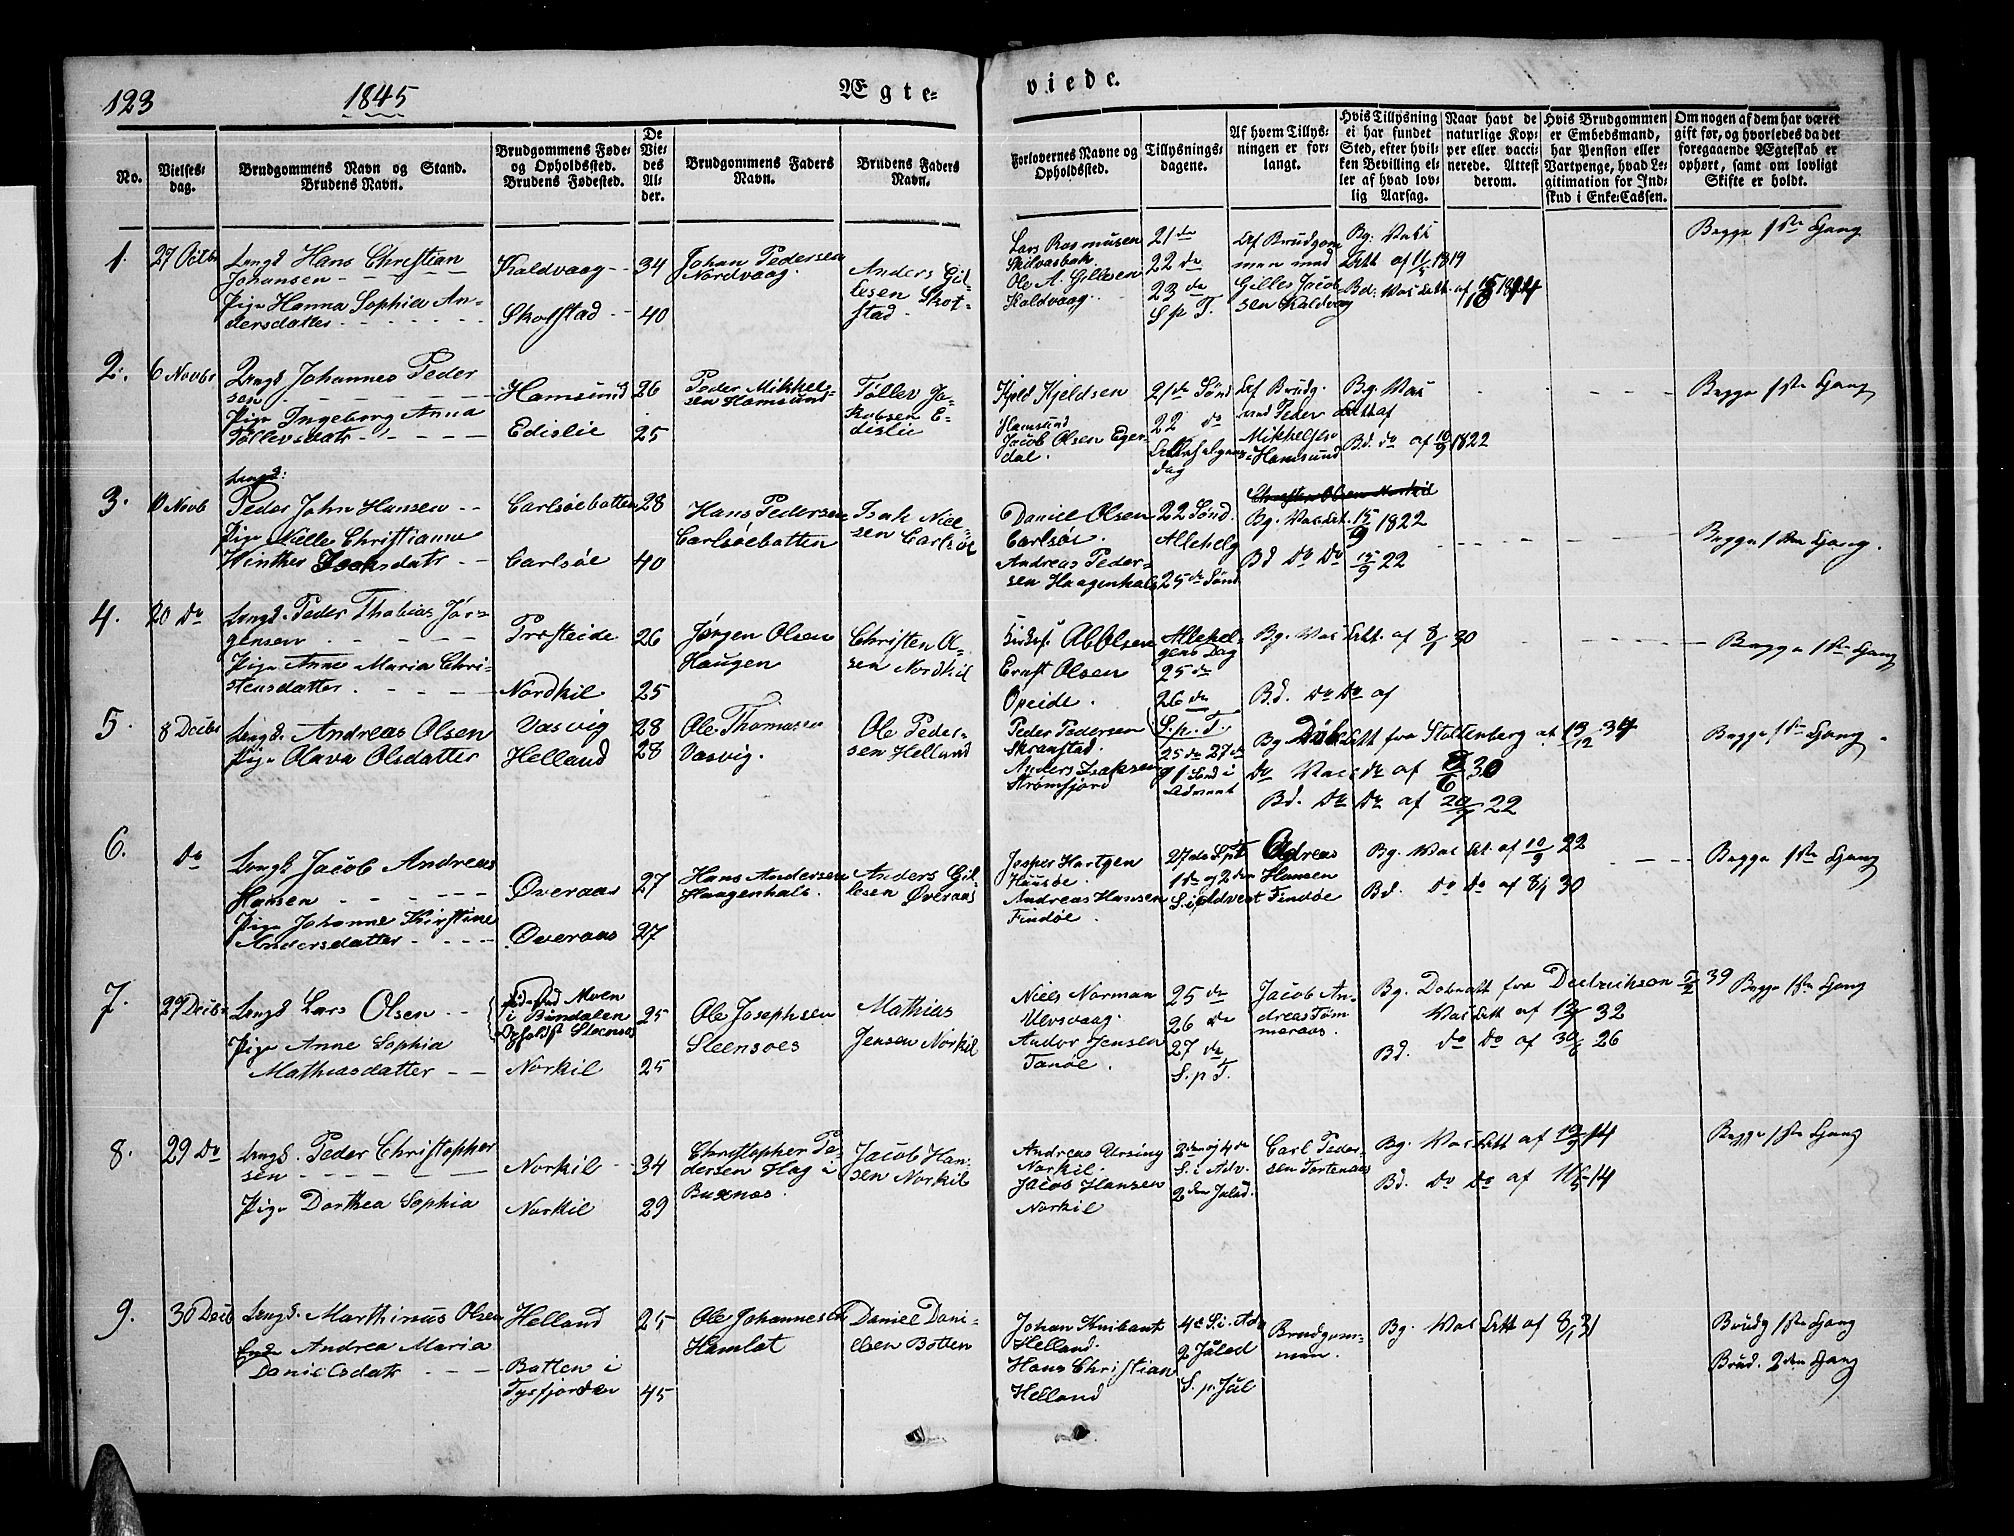 123
1845
Ægte-
viede.
No.
Vielses-
dag.
Brudgommens Navn og Stand.
Brudens Navn.
Brudgommens Føde-
og Opholdssted.
Brudens Fødested.
De
Vie-
des
Al-
der.
Brudgommens Faders
Navn.
Brudens Faders
Navn.
Forlovernes Navne og
Opholdssted.
Tillysnings-
dagene.
Af hvem Tillys-
ningen er for-
langt.
Hvis Tillysning
ei har fundet
Sted, efter hvil-
ken Bevilling el-
ler af hvad lov-
lig Aarsag.
Naar havt de
naturlige Kop-
per eller vacci-
nerede. Attest
derom.
Hvis Brudgommen
er Embedsmand,
har Pension eller
Vartpenge, hvad Le-
gitimation for Ind-
skud i Enke-Cassen.
Om nogen af dem har været
gift før, og hvorledes da det
foregaaende Ægteskab er
ophørt, samt om lovligt
Skifte er holdt.
1.
27
Ungk Hans Christian
Johansen
Pige Hanna Sophia An-
dersdatter
Kaldvaag
Skotstad
34
40
Johan Pedersen
Nordvaag.
Anders Gil-
lesen Skot-
stad.
Lars Rasmusen
Skilvasbak.
Ole A. Gillesen
Kaldvaag.
21de
22de
23de
S. p. T.
Af Brudgom
men med
Gilles Jacob-
sen Kaldvaag
Bg. Vac
Att af 11/5 1819
Bd. Vac. Att. af
Begge 1ste Gang
2.
6 Novbr
Ungk Johannes Peder
sen
Pige Ingeborg Anna
Tøllevsdatr
Hamsund
Edislie
26
25
Peder Mikkel-
sen Hamsund
Tøllev Ja-
kobsen E-
dislie
Kjeld Kjeldsen
Hamsund
Jacob Olsen Eger-
dal.
21de Sønd
22 do
dag
Af Brudg.
med Peder
Mikkelsen
Hamsund
Bg. Vac
Att af
Bd. do af 10/9 1822
Begge 1ste Gang
3.
Novb
Ungk:
Peder John Hansen
Pige Nille Christianne
Winther Isaksdatr
Carlsøebotten
Carlsøe
28
40
Hans Pedersen
Carlsøebotten
Isak Niel-
sen Carlsøe
Daniel Olsen
Carlsøe.
Andreas Peder-
sen Haagenhals
22 Sønd.
Allehelg
25de Sønd
Christen Olsen Norkil
Bg. Vac Att. 15/9 1822
Bd Do Do 15/9 22
Begge 1ste Gang.
4.
20 Do
Ungk. Peder Thobias Jør-
gensen
Pige Anne Maria Chri-
stensdatter
Presteide
Nordkil
26
25
Jørgen Olsen
Haugen
Christen O-
sen Nordkil
Ernst Olsen
Opeide
Allehel-
gens Dag
25de
26de
Bg. Vac Att. af 8/1 30
Bd. Do Do af
Begge 1ste Gang
5.
8 Decbr
Ungk. Andreas Olsen
Pige Olava Olsdatter
Vasvig
Helland
28
28
Ole Thomasen
Vasvig.
Ole Peder-
sen Helland
Peder Pedersen
Skranstad.
Anders Isaksen
Strømfjord
S. p. T.
25de 27de
og 1 Sønd i
Advent
Bg. Døbe Att fra Stoltenberg af 13/12 34
Do Vac do af 30
Bd. Do Do af 20/9 22
Begge 1ste Gang.
6.
Do
Ungk Jacob Andreas
Hansen
Pige Johanne Kirstine
Andersdatter
Øveraas
Øveraas
27
27
Hans Andersen
Haagenhals.
Anders Gil-
lesen Øveraas
Jesper Hartgen
Huusøe.
Andreas Hansen
Findøe.
27de S. p. T.
1ste og 2den
S. i Advent
Andreas
Hansen
Findøe
Bg. Vac Att af 10/9 22
Bd. Do Do af 8/1 30
Begge 1ste Gang
7.
27 Decbr
Ungk Lars Olsen
Pige Anne Sophia
Mathiasdatter
Fødested Moen
i Bindalen
Opholdst Steensoes
Norkil
25
25
Ole Josephsen
Steensoes
Mathias
Jensen Norkil
Niels Norman
Ulvsvaag.
Andor Jensen
Tanøe.
25de
26 de
27 de
S. p. T.
Jacob An-
dreas Tøm
meraas.
Bg. Døbeatt fra Dedrickson 39
Vac Att af 32
Bd. do do af 30/6 26
Begge 1ste Gang
8.
29 Do
Ungk. Peder Christopher
sen
Pige Dorthea Sophia
Norkil
Norkil
34
29
Christopher Pe-
dersen Hag i
Buxnæs.
Jacob Han-
sen Norkil
Andreas Ursin
Norkil.
Jacob Hansen
Norkil
3die og 4de
S. i Adv.
2den Juled.
Carl Peder-
sen Tortenaas
Bg. Vac Att af 14
Bd. Do Do af 14
Begge 1ste Gang
9.
30 Decb
Ungk. Marthinus Olsen
Enke Andrea Maria
Danielsdatr
Helland
Botten i
Tysfjorden
25
45
Ole Johannesen
Hamlot
Daniel Dani-
elsen Botten
Johan Knibant
Helland.
Hans Christian
Helland
4de S. i. Adv
2 Juled
S. p. Jul
Brudgom-
men.
Bg. Vac Att af 8/1 31
Brudg 1ste Gang
Brud. 2den Gang